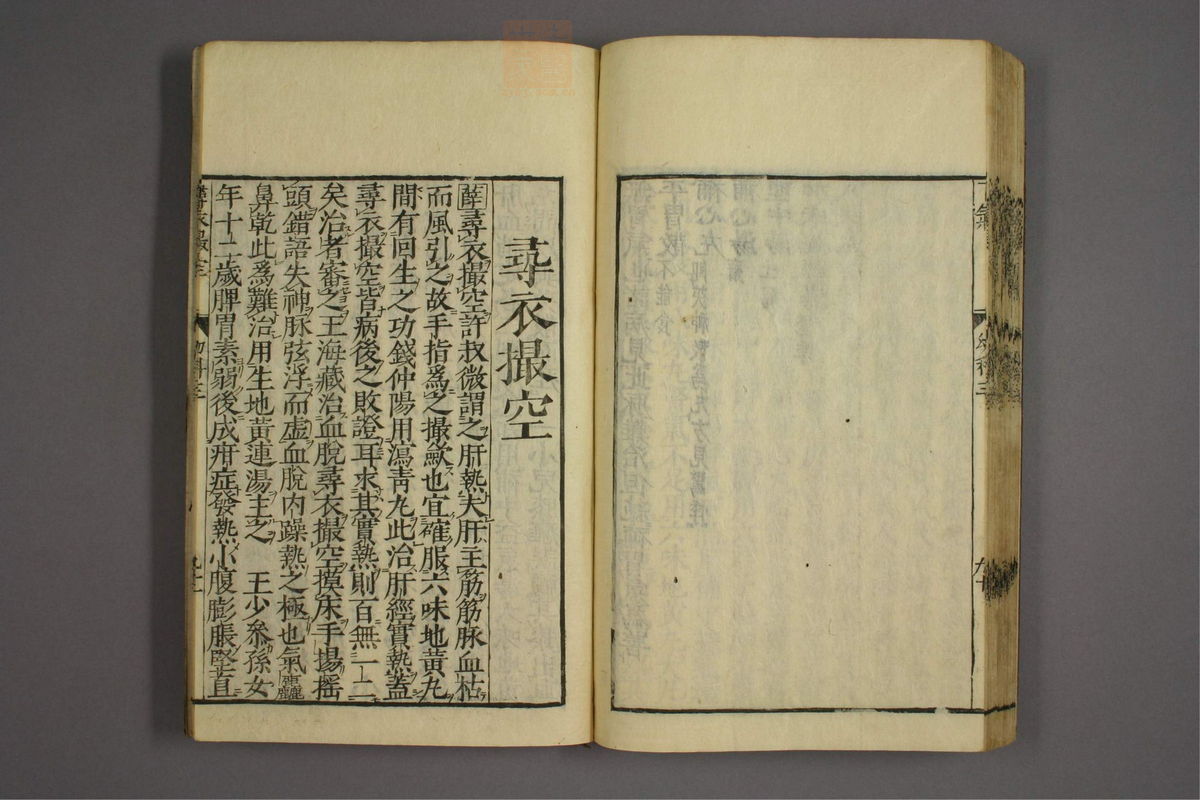 尋衣撮空
薛尋衣撮空許叔微謂之肝熱夫肝主筋筋脉血枯
而風引之故手指為之撮歛也宜確服六味地黄丸
間有回生之功錢仲陽用瀉青丸此治肝經實熱蓋
尋衣撮空皆病後之敗證耳求其實熱則百無一二
矣治者審之王海藏治血脫尋衣撮空摸床手揚揺
頭錯語失神脉弦浮而虚血脫内躁熱之極也氣麤
鼻乾此爲難治用生地黄連湯主之 王少叅孫女
年十二歲脾胃素弱後成疳症發熱小腹膨脹堅直